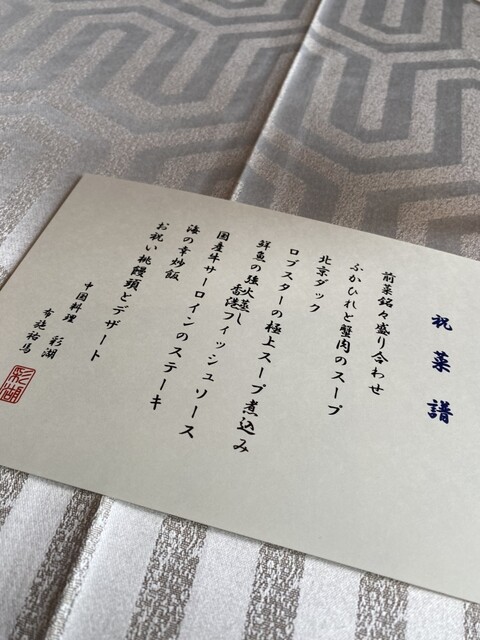 祝菜譜
前菜銘々盛り合わせ
ふかひれと蟹肉のスープ
北京ダック
ロブスターの極上スープ煮込み
鮮魚の強火蒸し
香港フィッシュソース
国産牛サーロインのステーキ
海の幸炒飯
お祝い桃饅頭とデザート
中国料理 彩湖
布施裕馬
彩湖